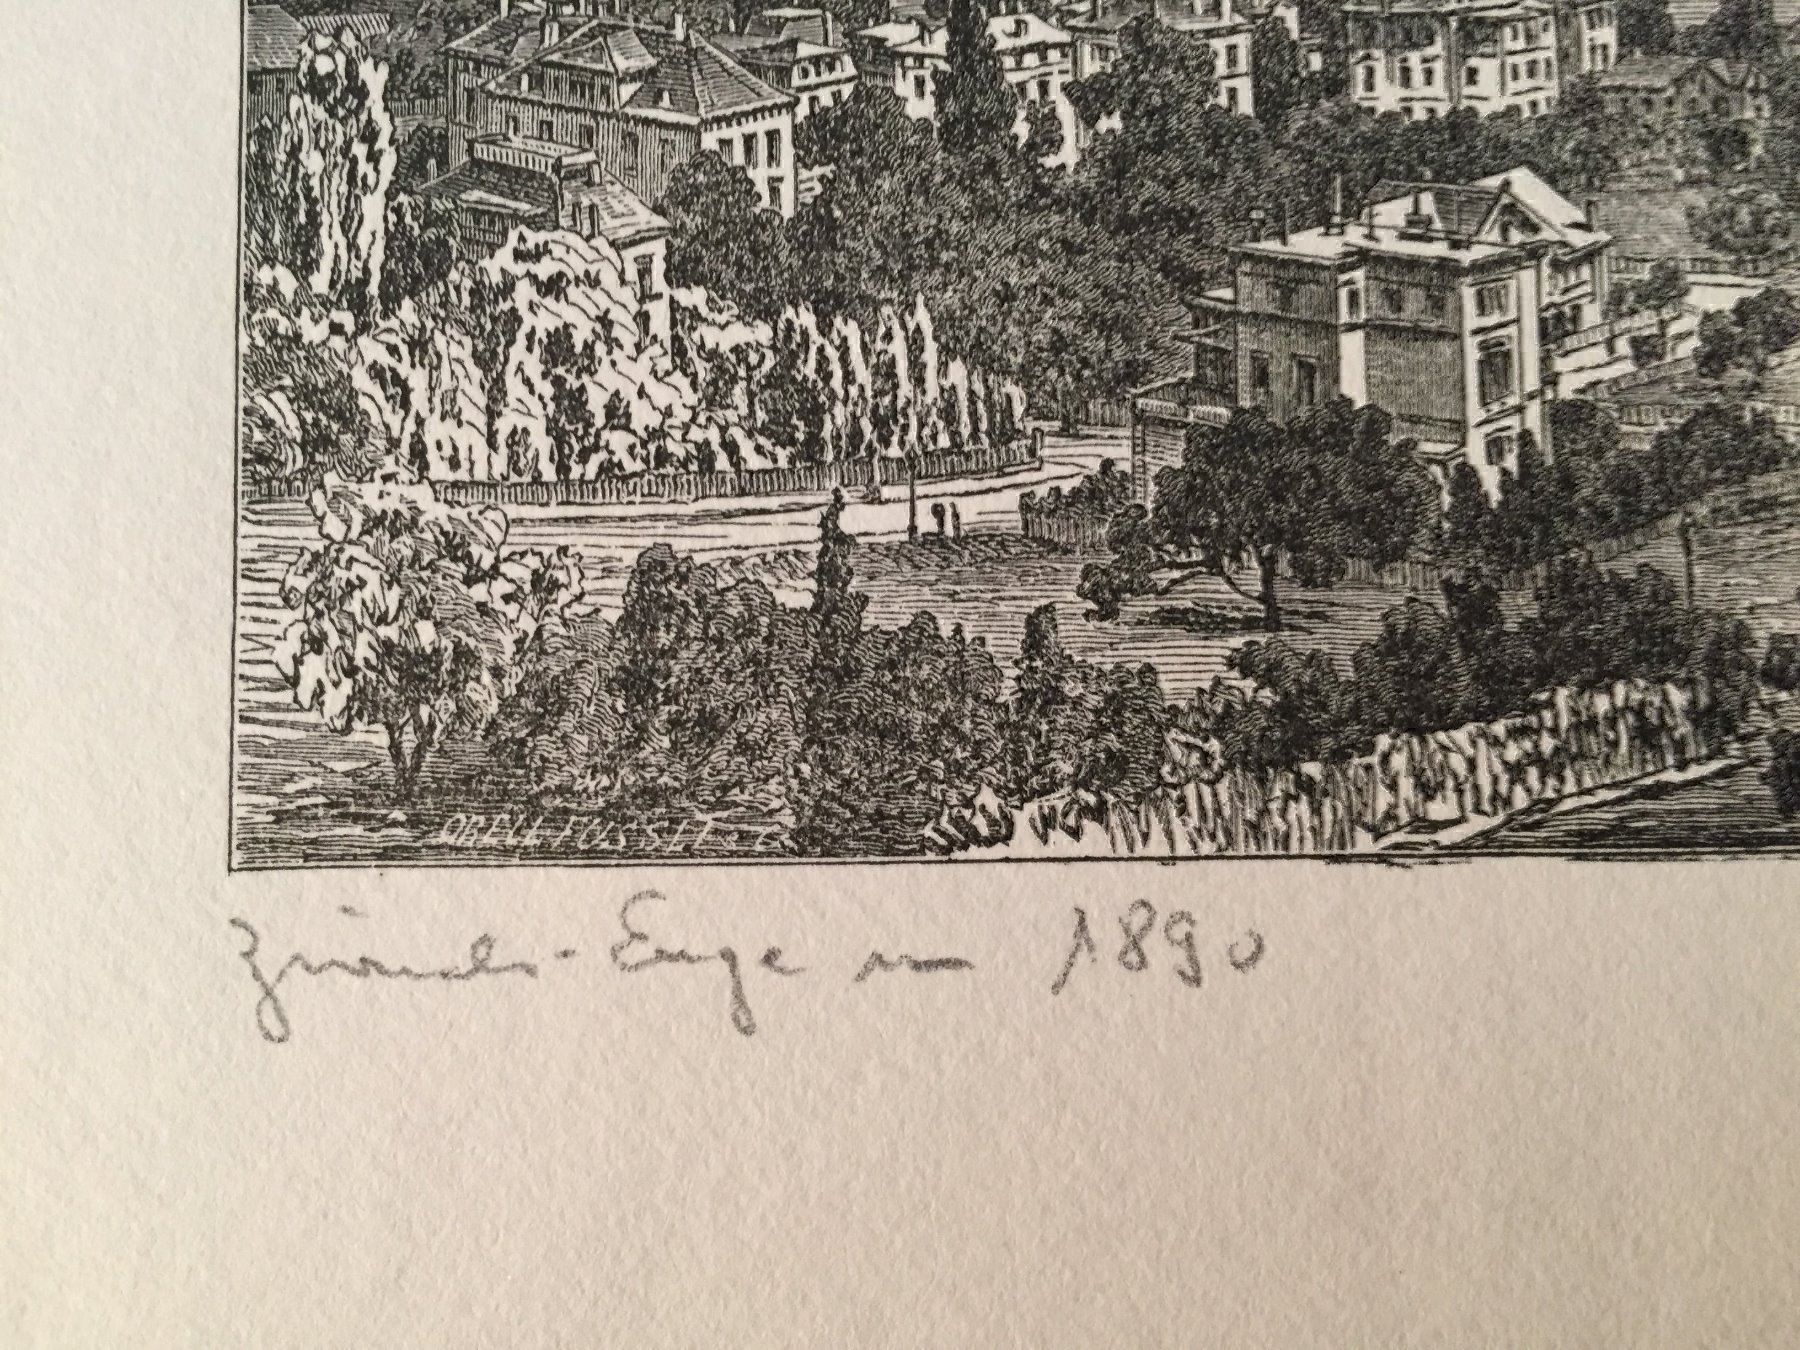 ORELL FUSSLI & C.
Zürich-Enge um 1890